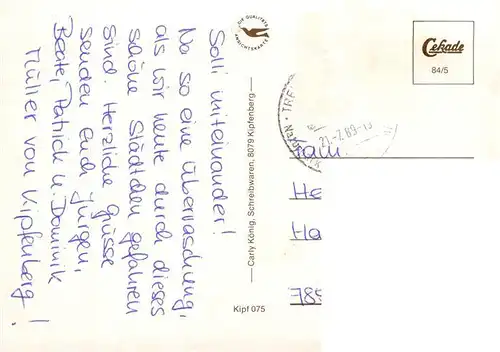 Solli miteinander!
No so eine Überraschung,
als wir heute durch dieses
schöne Städtchen gefahren
sind. Herzliche Grüsse
senden Euch Jürgen,
Beate, Patrick u. Dominik
Müller von Kipfenberg!
DIE QUALITÄTS
ANSICHTSKARTE
Carly König, Schreibwaren, 8079 Kipfenberg
Kipf 075
Cekade
84/5
21.-7.89-15
Fam.
He
Ha
785